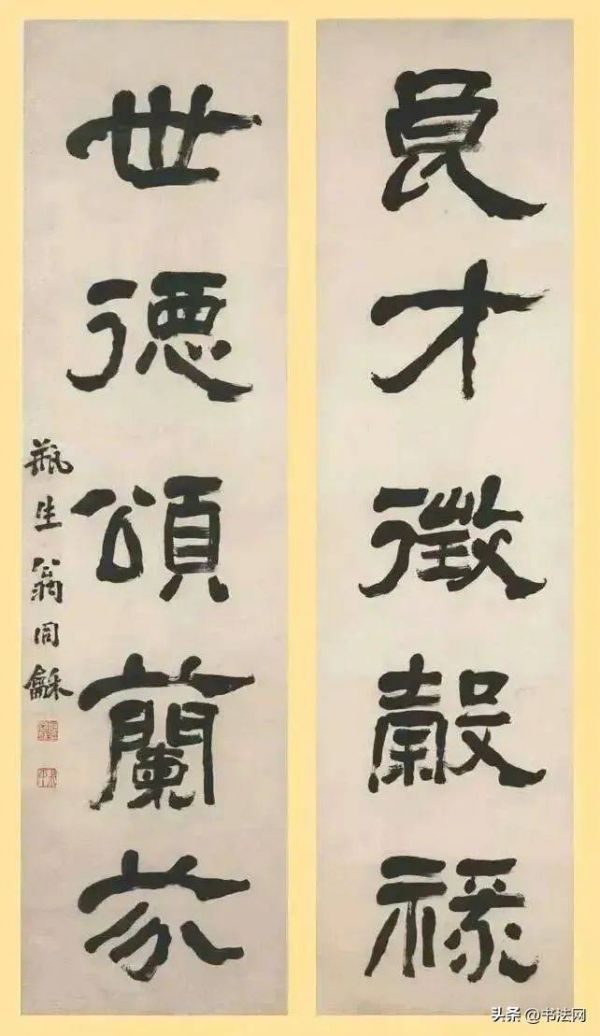 良才徵穀祿
世德頌蘭芬
瓶生翁同龢
头条@书法网